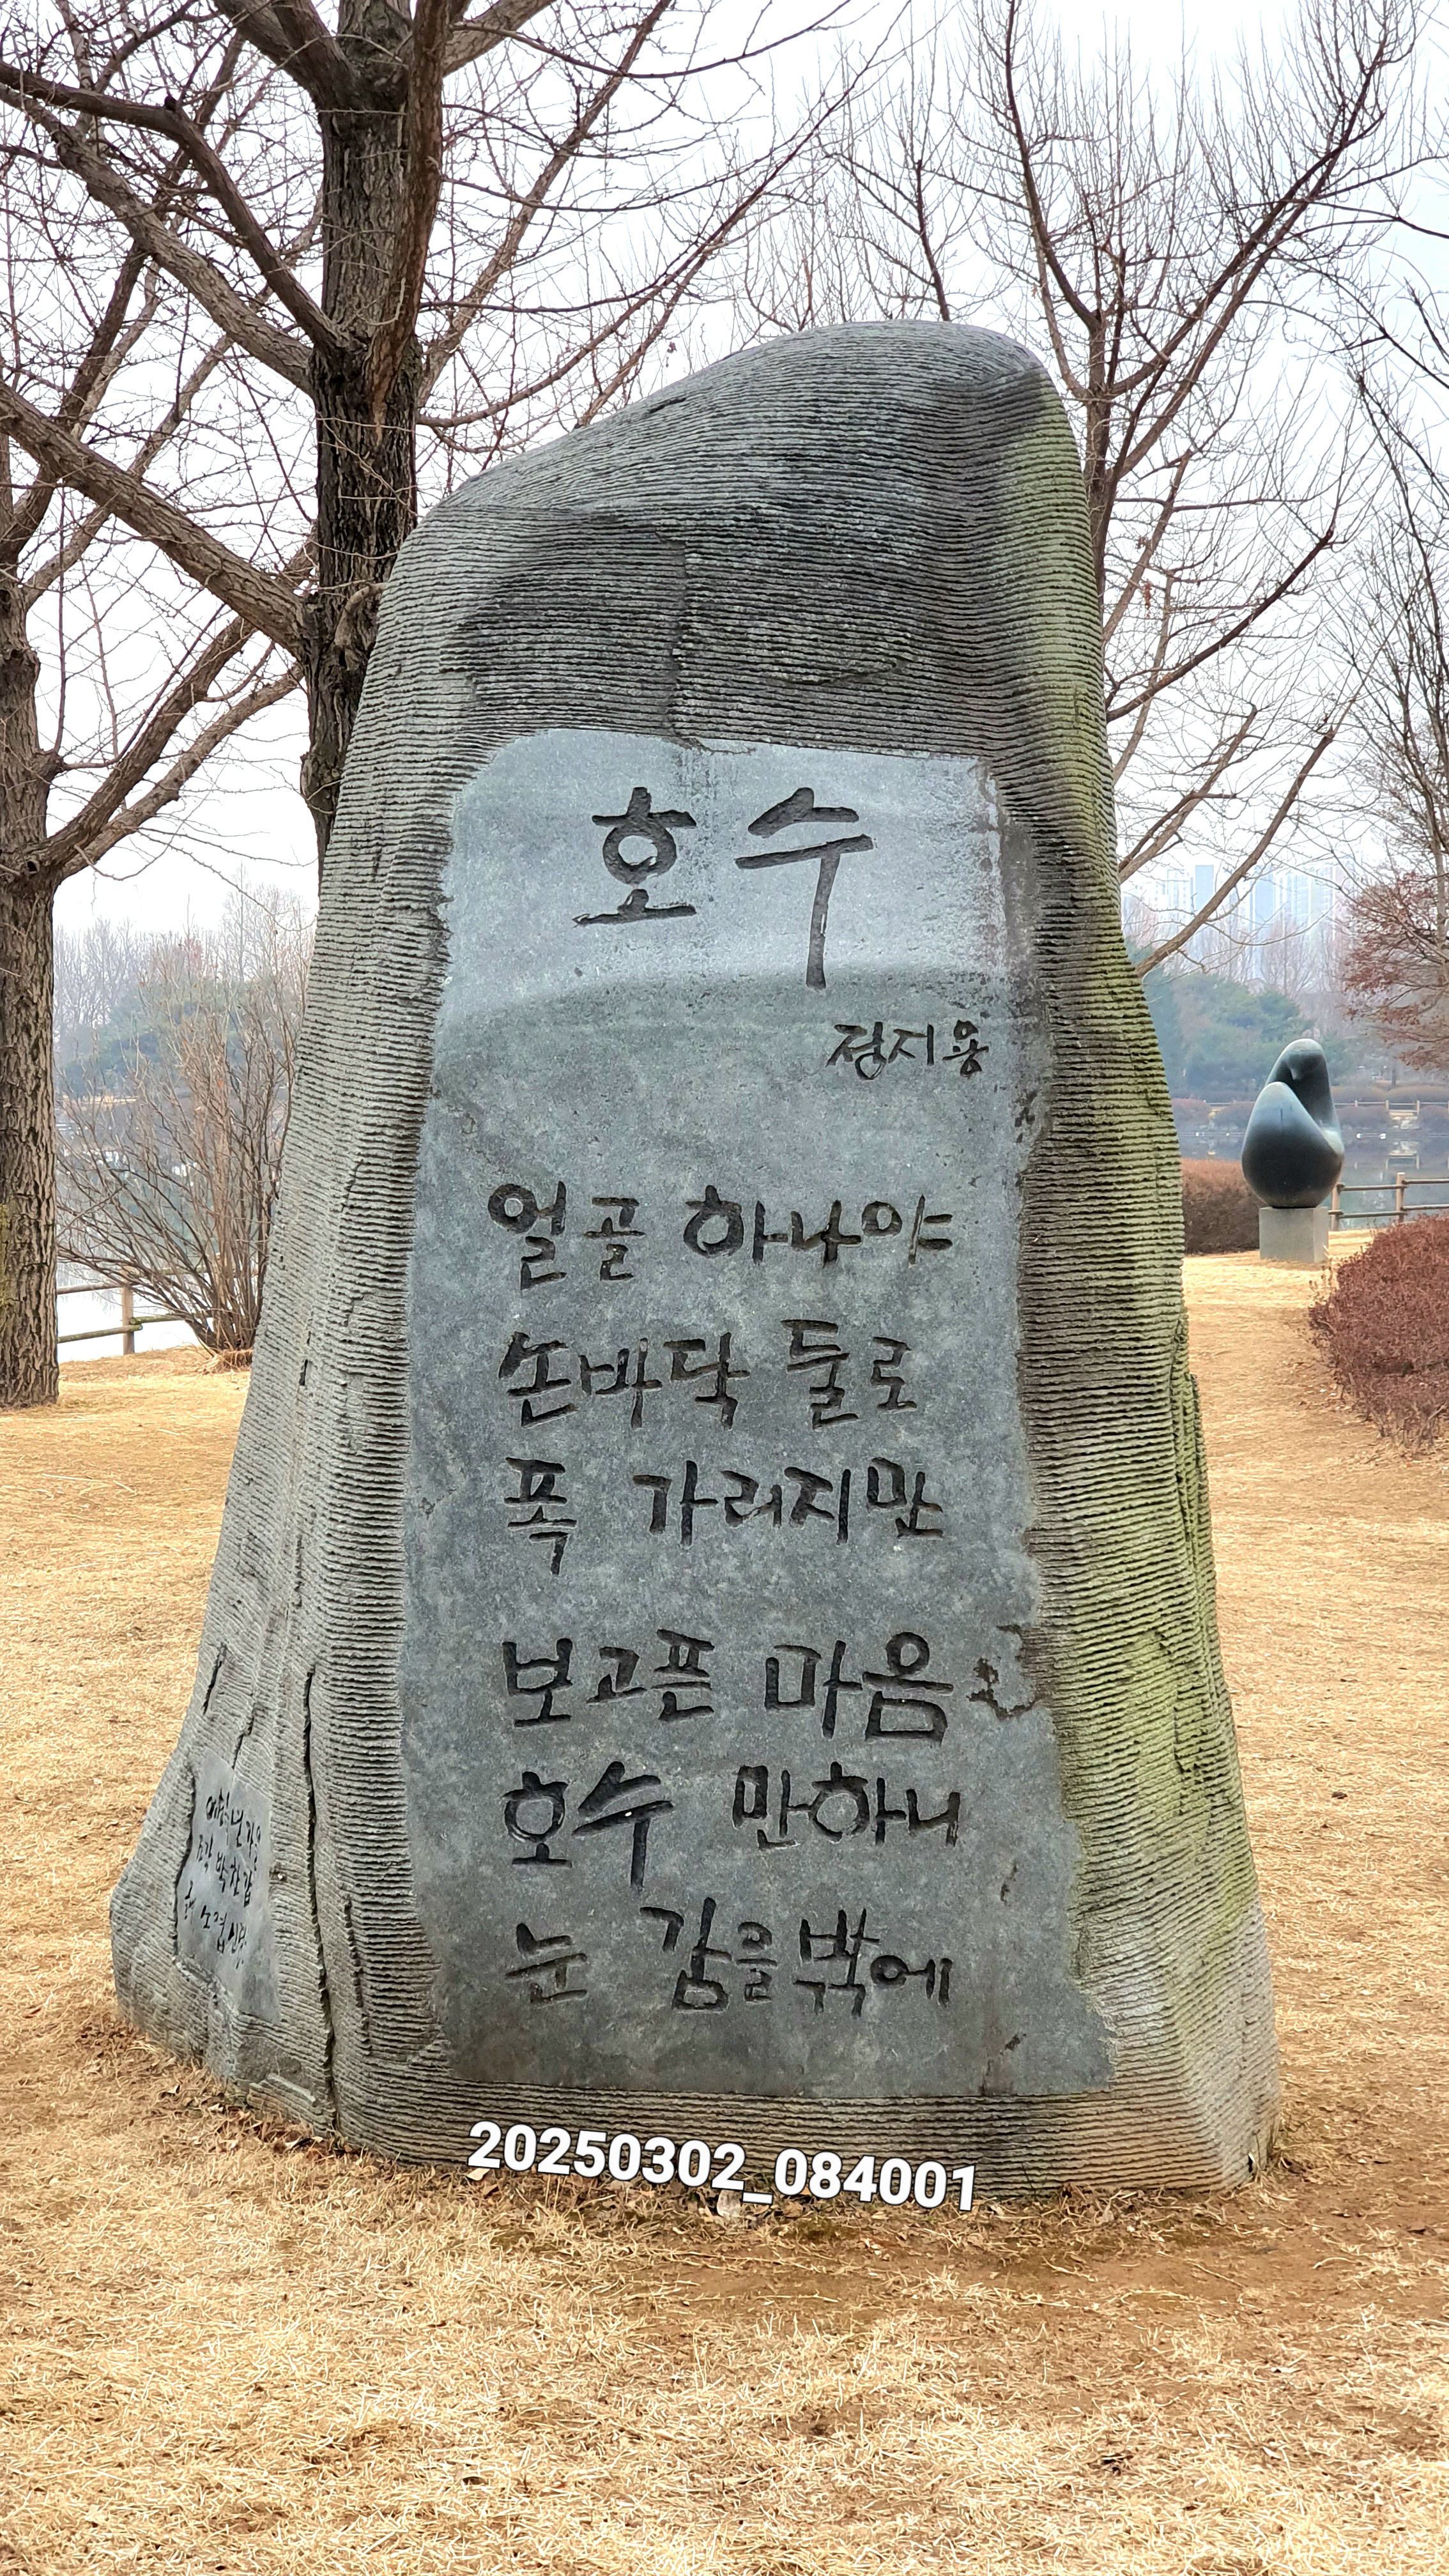 호수
정지용
얼골 하나야
손바닥 둘로
폭 가리지만
보고픈 마음
호수 만하니
눈 감을밖에
20250302_084001